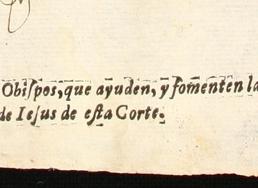 Obiſpos, que ayuden, y fomenten la
de Ieſus de eſta Corte.